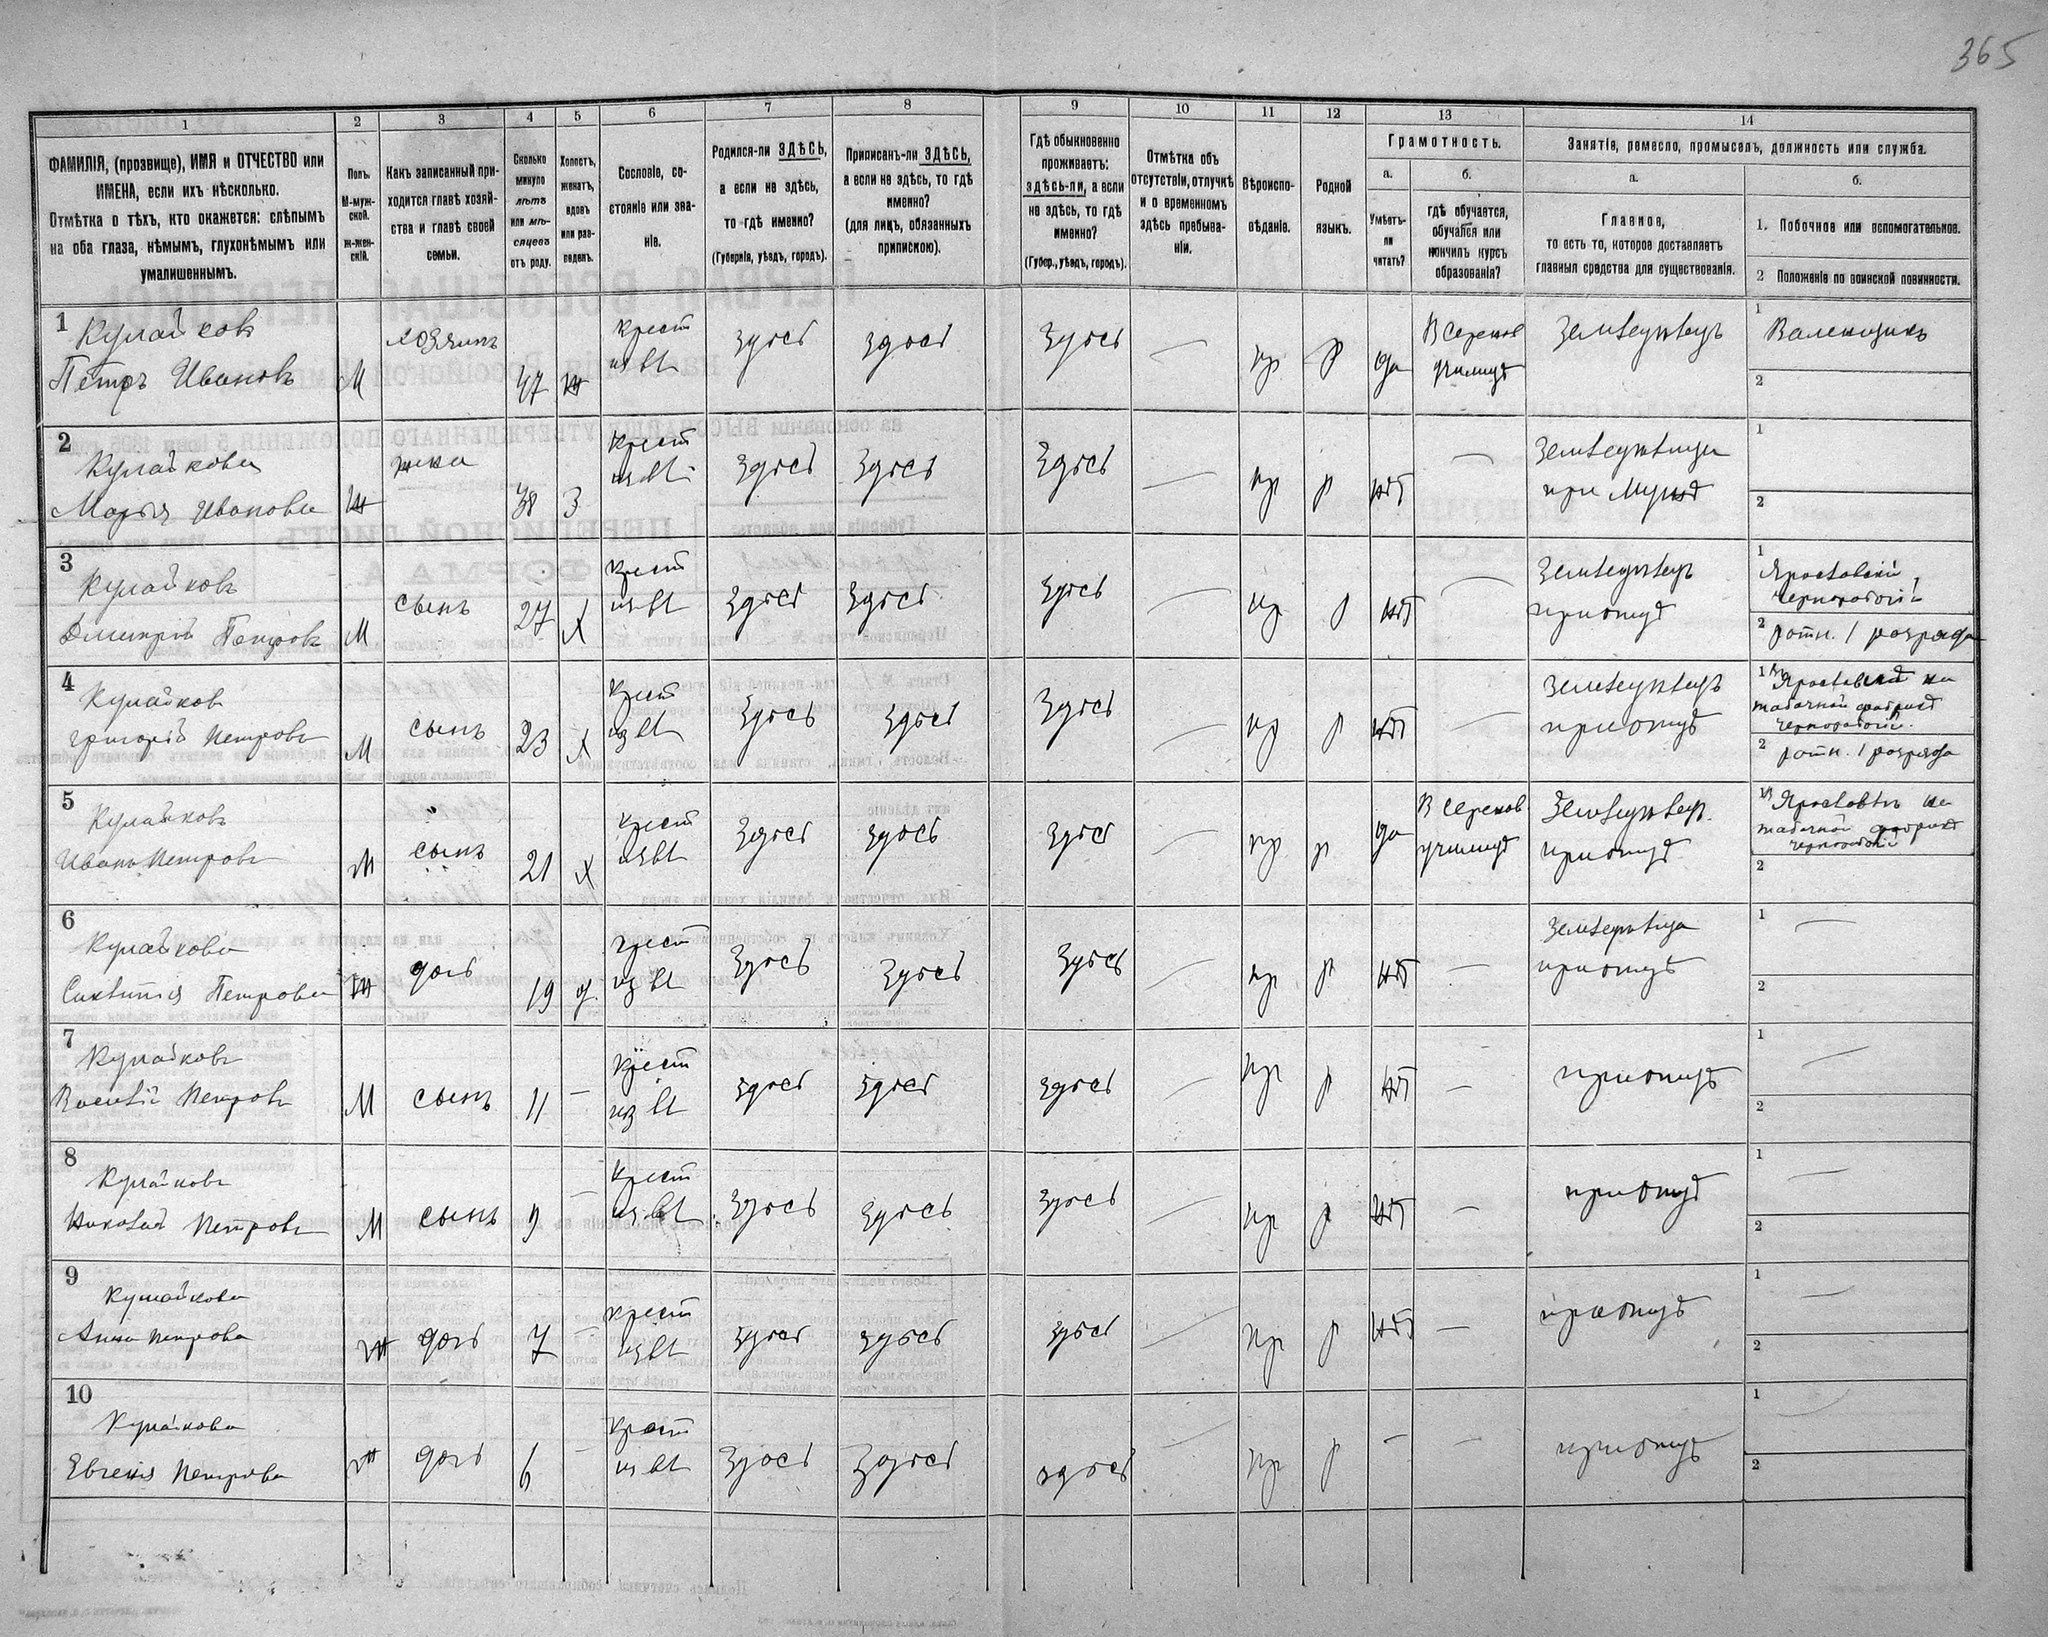 365
1
2
3
4
5
6
7
8
9
10
11
12
13
14
ФАМИЛІЯ, (прозвище), ИМЯ и ОТЧЕСТВО или
ИМЕНА, если ихъ нѣсколько.
Отмѣтка о тѣхъ, кто окажется: слѣпымъ
на оба глаза, нѣмымъ, глухонѣмымъ или
умалишеннымъ.
Полъ.
М-муж-
ской.
Ж-жен-
скій.
Какъ записанный при-
ходится главѣ хозяй-
ства и главѣ своей
семьи.
Сколько
минуло
лѣтъ
или мѣ-
сяцевъ
отъ роду.
Холостъ,
женатъ,
вдовъ
или раз-
веденъ.
Сословіе, со-
стояніе или зва-
ніе.
Родился-ли ЗДѢСЬ,
а если не здѣсь,
то гдѣ именно?
(Губернія, уѣздъ, городъ).
Приписанъ-ли ЗДѢСЬ,
а если не здѣсь, то гдѣ
именно?
(для лицъ, обязанныхъ
припискою).
Гдѣ обыкновенно
проживаетъ:
здѣсь-ли, а если
не здѣсь, то гдѣ
именно?
(Губер., уѣздъ, городъ).
Отмѣтка объ
отсутствіи, отлучкѣ
и о временномъ
здѣсь пребыва-
ніи.
Вѣроиспо-
вѣданіе.
Родной
языкъ.
Грамотность.
а.
Умѣетъ-
ли
читать?
б.
гдѣ обучается,
обучался или
кончилъ курсъ
образованія?
Занятіе, ремесло, промыселъ, должность или служба.
а.
Главное,
то есть то, которое доставляетъ
главныя средства для существованія.
б.
1. Побочное или вспомогательное.
2 Положеніе по воинской повинности.
1 Кулайковъ
Петръ Ивановъ М хозяинъ 47 ж крест
из вл здѣсь здѣсь здѣсь — пр р да В Серенов
училищѣ Земледѣлецъ 1 Валенщикъ
2
2 Кулайкова
Марья Иванова Ж жена 38 З крест
из вл здѣсь здѣсь здѣсь — пр р нѣт — Земледѣлица
при мужѣ 1
2
3 Кулайковъ
Дмитрій Петровъ М сынъ 27 х крест
из вл здѣсь здѣсь здѣсь — пр р нѣт — Земледѣлецъ
при отцѣ 1
чернорабочій
2 ратн. 1 разряда
4 Кулайков
Григорій Петровъ М сынъ 23 х крест
из вл здѣсь здѣсь здѣсь — пр р нѣт — Земледѣлецъ
при отцѣ 1 на
табачной фабрикѣ
чернорабочій.
2 ратн. 1 разряда
5 Кулайковъ
Иванъ Петровъ М сынъ 21 х крест
из вл здѣсь здѣсь здѣсь — пр р да В Серенов
училищѣ Земледѣлец.
при отцѣ 1 на
табачной фабрикѣ
чернорабочій
2
6 Кулайкова
Петрова Ж дочь 19 д. крест
из вл здѣсь здѣсь здѣсь — пр р нѣт — Земледѣлица
при отцѣ 1 —
2
7 Кулайковъ
Василій Петровъ М сынъ 11 — крест
из вл здѣсь здѣсь здѣсь — пр р нѣт — при отцѣ 1 —
2
8 Кулайковъ
Николай Петровъ М сынъ 9 — крест
из вл здѣсь здѣсь здѣсь — пр р нѣт — при отцѣ 1 —
2
9 Кулайкова
Анна Петрова Ж дочь 7 — крест
из вл здѣсь здѣсь здѣсь — пр р нѣт — при отцѣ 1 —
2
10 Кулайкова
Евгенія Петрова Ж дочь 6 — крест
из вл здѣсь здѣсь здѣсь — пр р — — при отцѣ 1 —
2